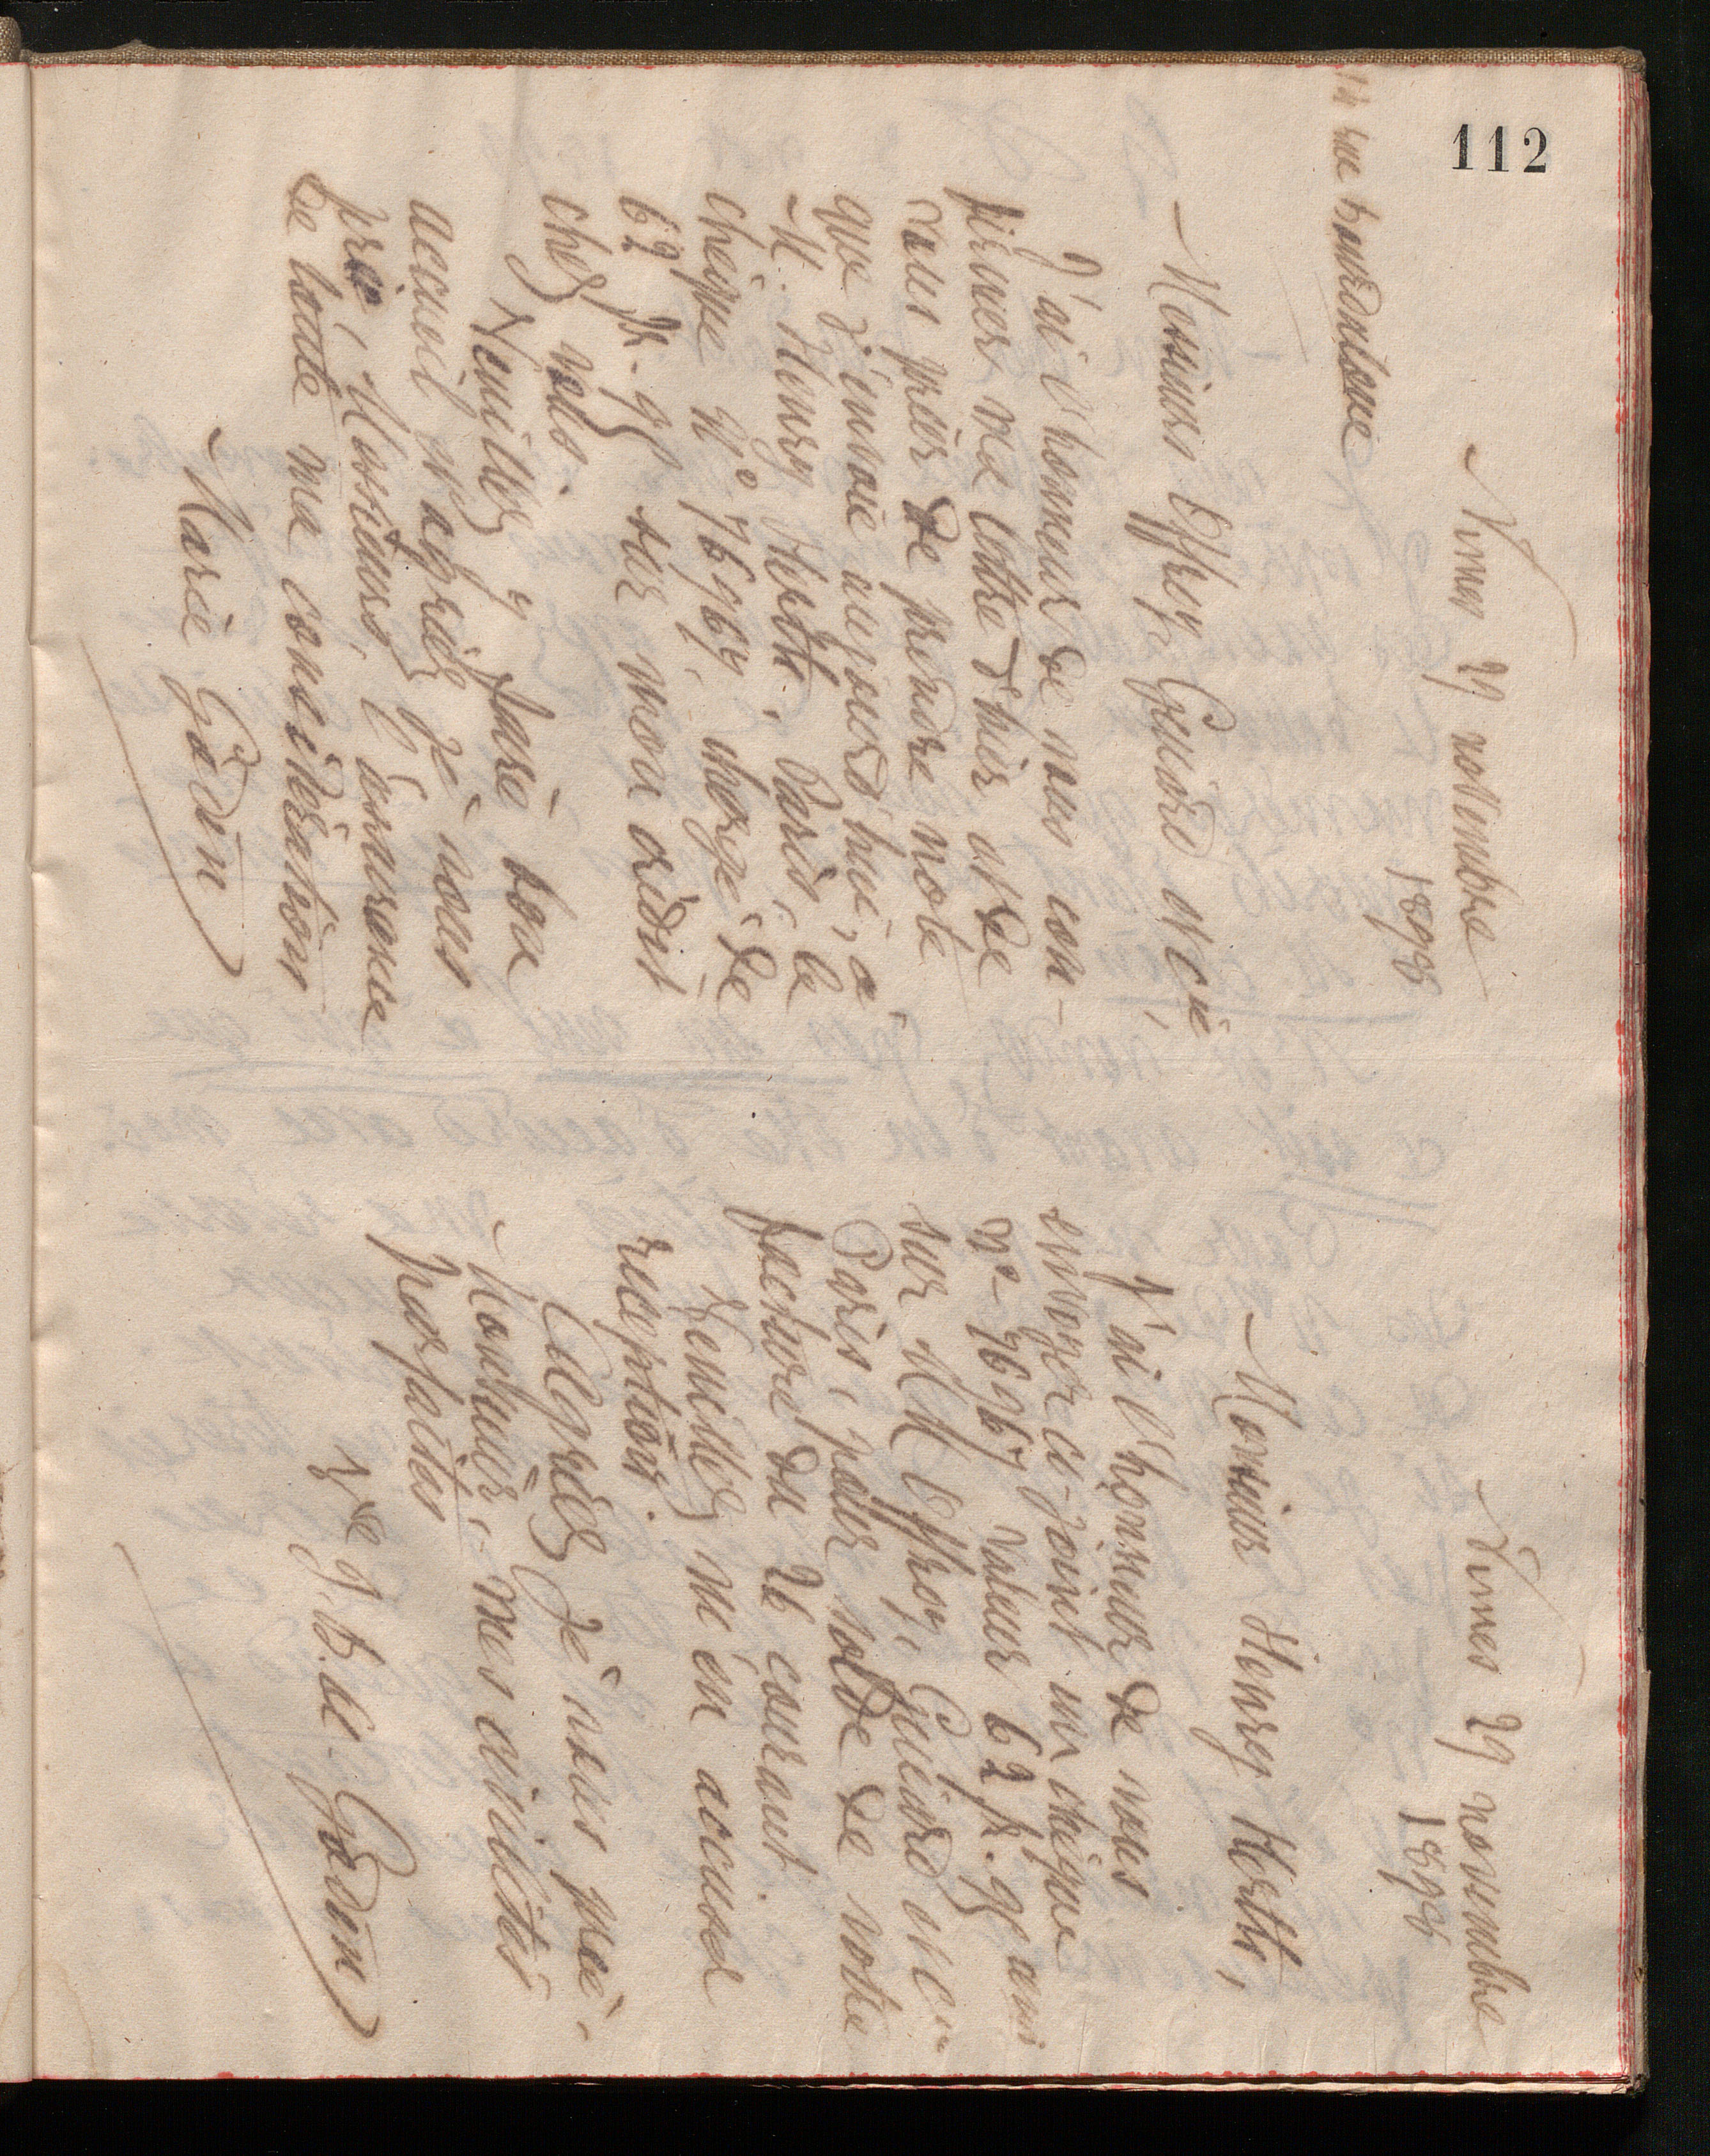 112
Nimes 29 novembre
1898
rue Bourdaloue
Messieurs Offroy Guiard et Cie,
J'ai l'honneur de vous con-
firmer ma lettre d'hier et de
vous prier de prendre note
que j'envoie aujourd'hui, à
M. Henry Herth, Paris, le
chèque N° 76967, chargé de
62 fr. 95 sur mon crédit
chez vous.
Veuillez y faire bon
accueil et agréer je vous
prie, Messieurs, l'assurance
de toute ma considération
Marie Godin
Nimes 29 novembre
1898
Monsieur Henry Herth,
J'ai l'honneur de vous
envoyer ci-joint un chèque
N° 76967 valeur 62 fr. 95 
sur MM Offroy, Guiard et Cie
Paris, pour solde de votre
facture du 26 courant.
Veuillez m'en accuser
réception.
Agréez je vous prie,
Monsieur, mes civilités
parfaites
Vve J. B. A. Godin